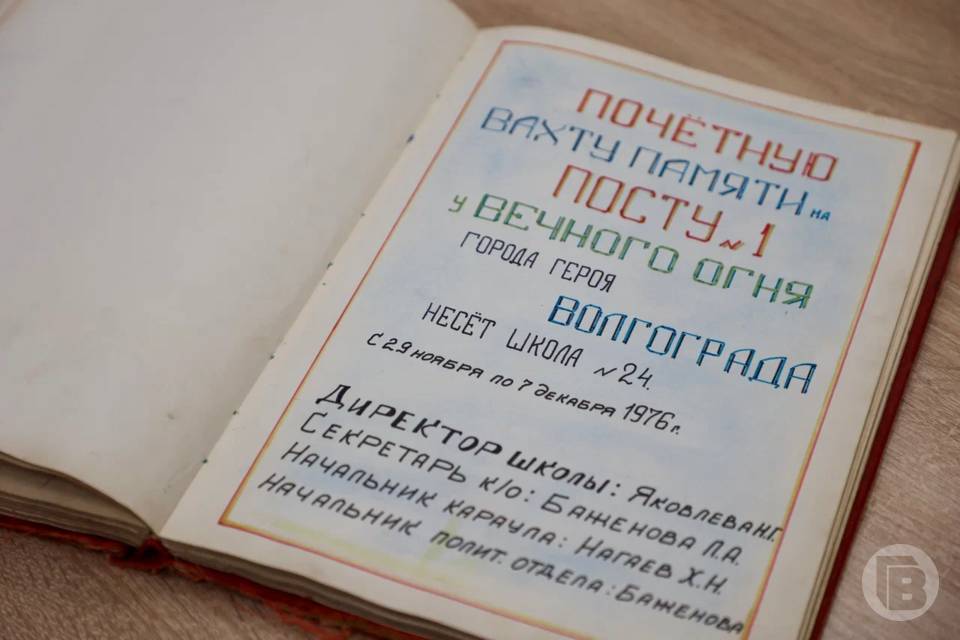 ПОЧЁТНУЮ
ВАХТУ ПАМЯТИ НА
ПОСТУ №1
У ВЕЧНОГО ОГНЯ
ГОРОДА ГЕРОЯ
ВОЛГОГРАДА
НЕСЁТ ШКОЛА №24.
С 29 НОЯБРЯ ПО 7 ДЕКАБРЯ 1976г.
ДИРЕКТОР ШКОЛЫ: ЯКОВЛЕВА Н.Г.
СЕКРЕТАРЬ К/О: БАЖЕНОВА Л.А.
НАЧАЛЬНИК КАРАУЛА: НАГАЕВ Х.Н.
НАЧАЛЬНИК ПОЛИТ. ОТДЕЛА: БАЖЕНОВА